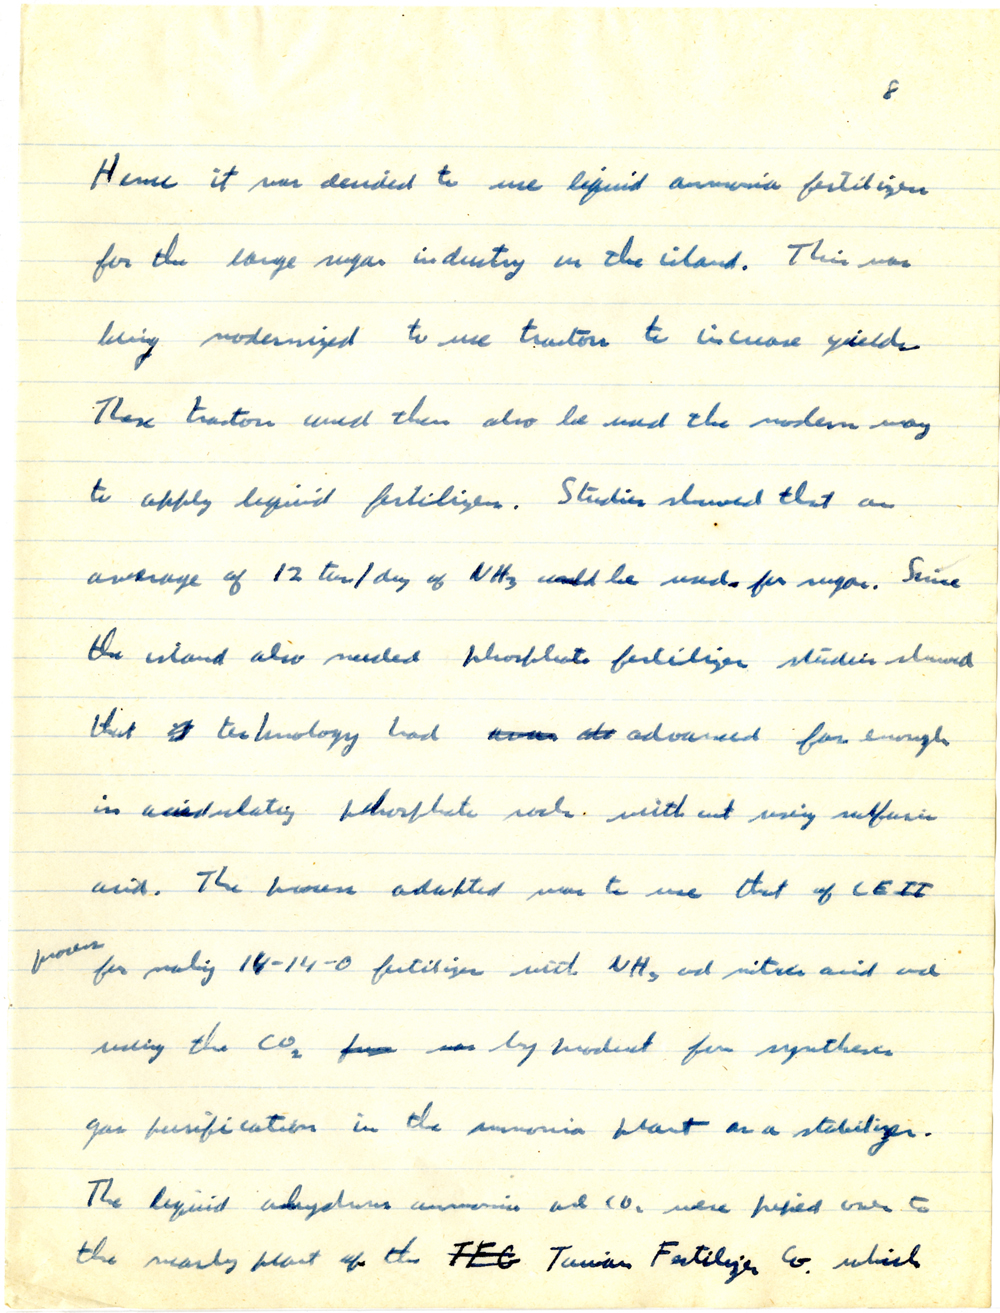 8
Hence it was decided to use liquid ammonia fertilizer
for the large sugar industry on the island. This was
being modernized to use tractors to increase yields
These tractors could then also be used the modern way
to apply liquid fertilizers. Studies showed that an
average of 12 tons/day of NH3 could be used for sugar. Since
the island also needed phosphate fertilizer studies showed
that technology had advanced far enough
in acidulating phosphate rock without using sulfuric
acid. The process adapted was to use that of
process
for making 14-14-0 fertilizer with NH3 and nitric acid and
using the CO2 by product for synthesis
gas purification in the ammonia plant as a stabilizer.
The liquid anhydrous ammonia and CO2 were piped over to
the nearby plant of the TFC Taiwan Fertilizer Co. which